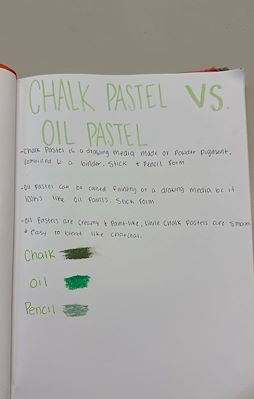 CHALK PASTEL VS.
OIL PASTEL
-Chalk Pastel is a drawing media made of powder pigment,
combined w a binder. Stick + Pencil form
-Oil Pastel can be called Painting or a drawing media bc it
looks like oil Paints. Stick form
-Oil Pastels are creamy + Paint-like, while Chalk Pastels are smooth
+ easy to blend like charcoal.
Chalk
Oil
Pencil